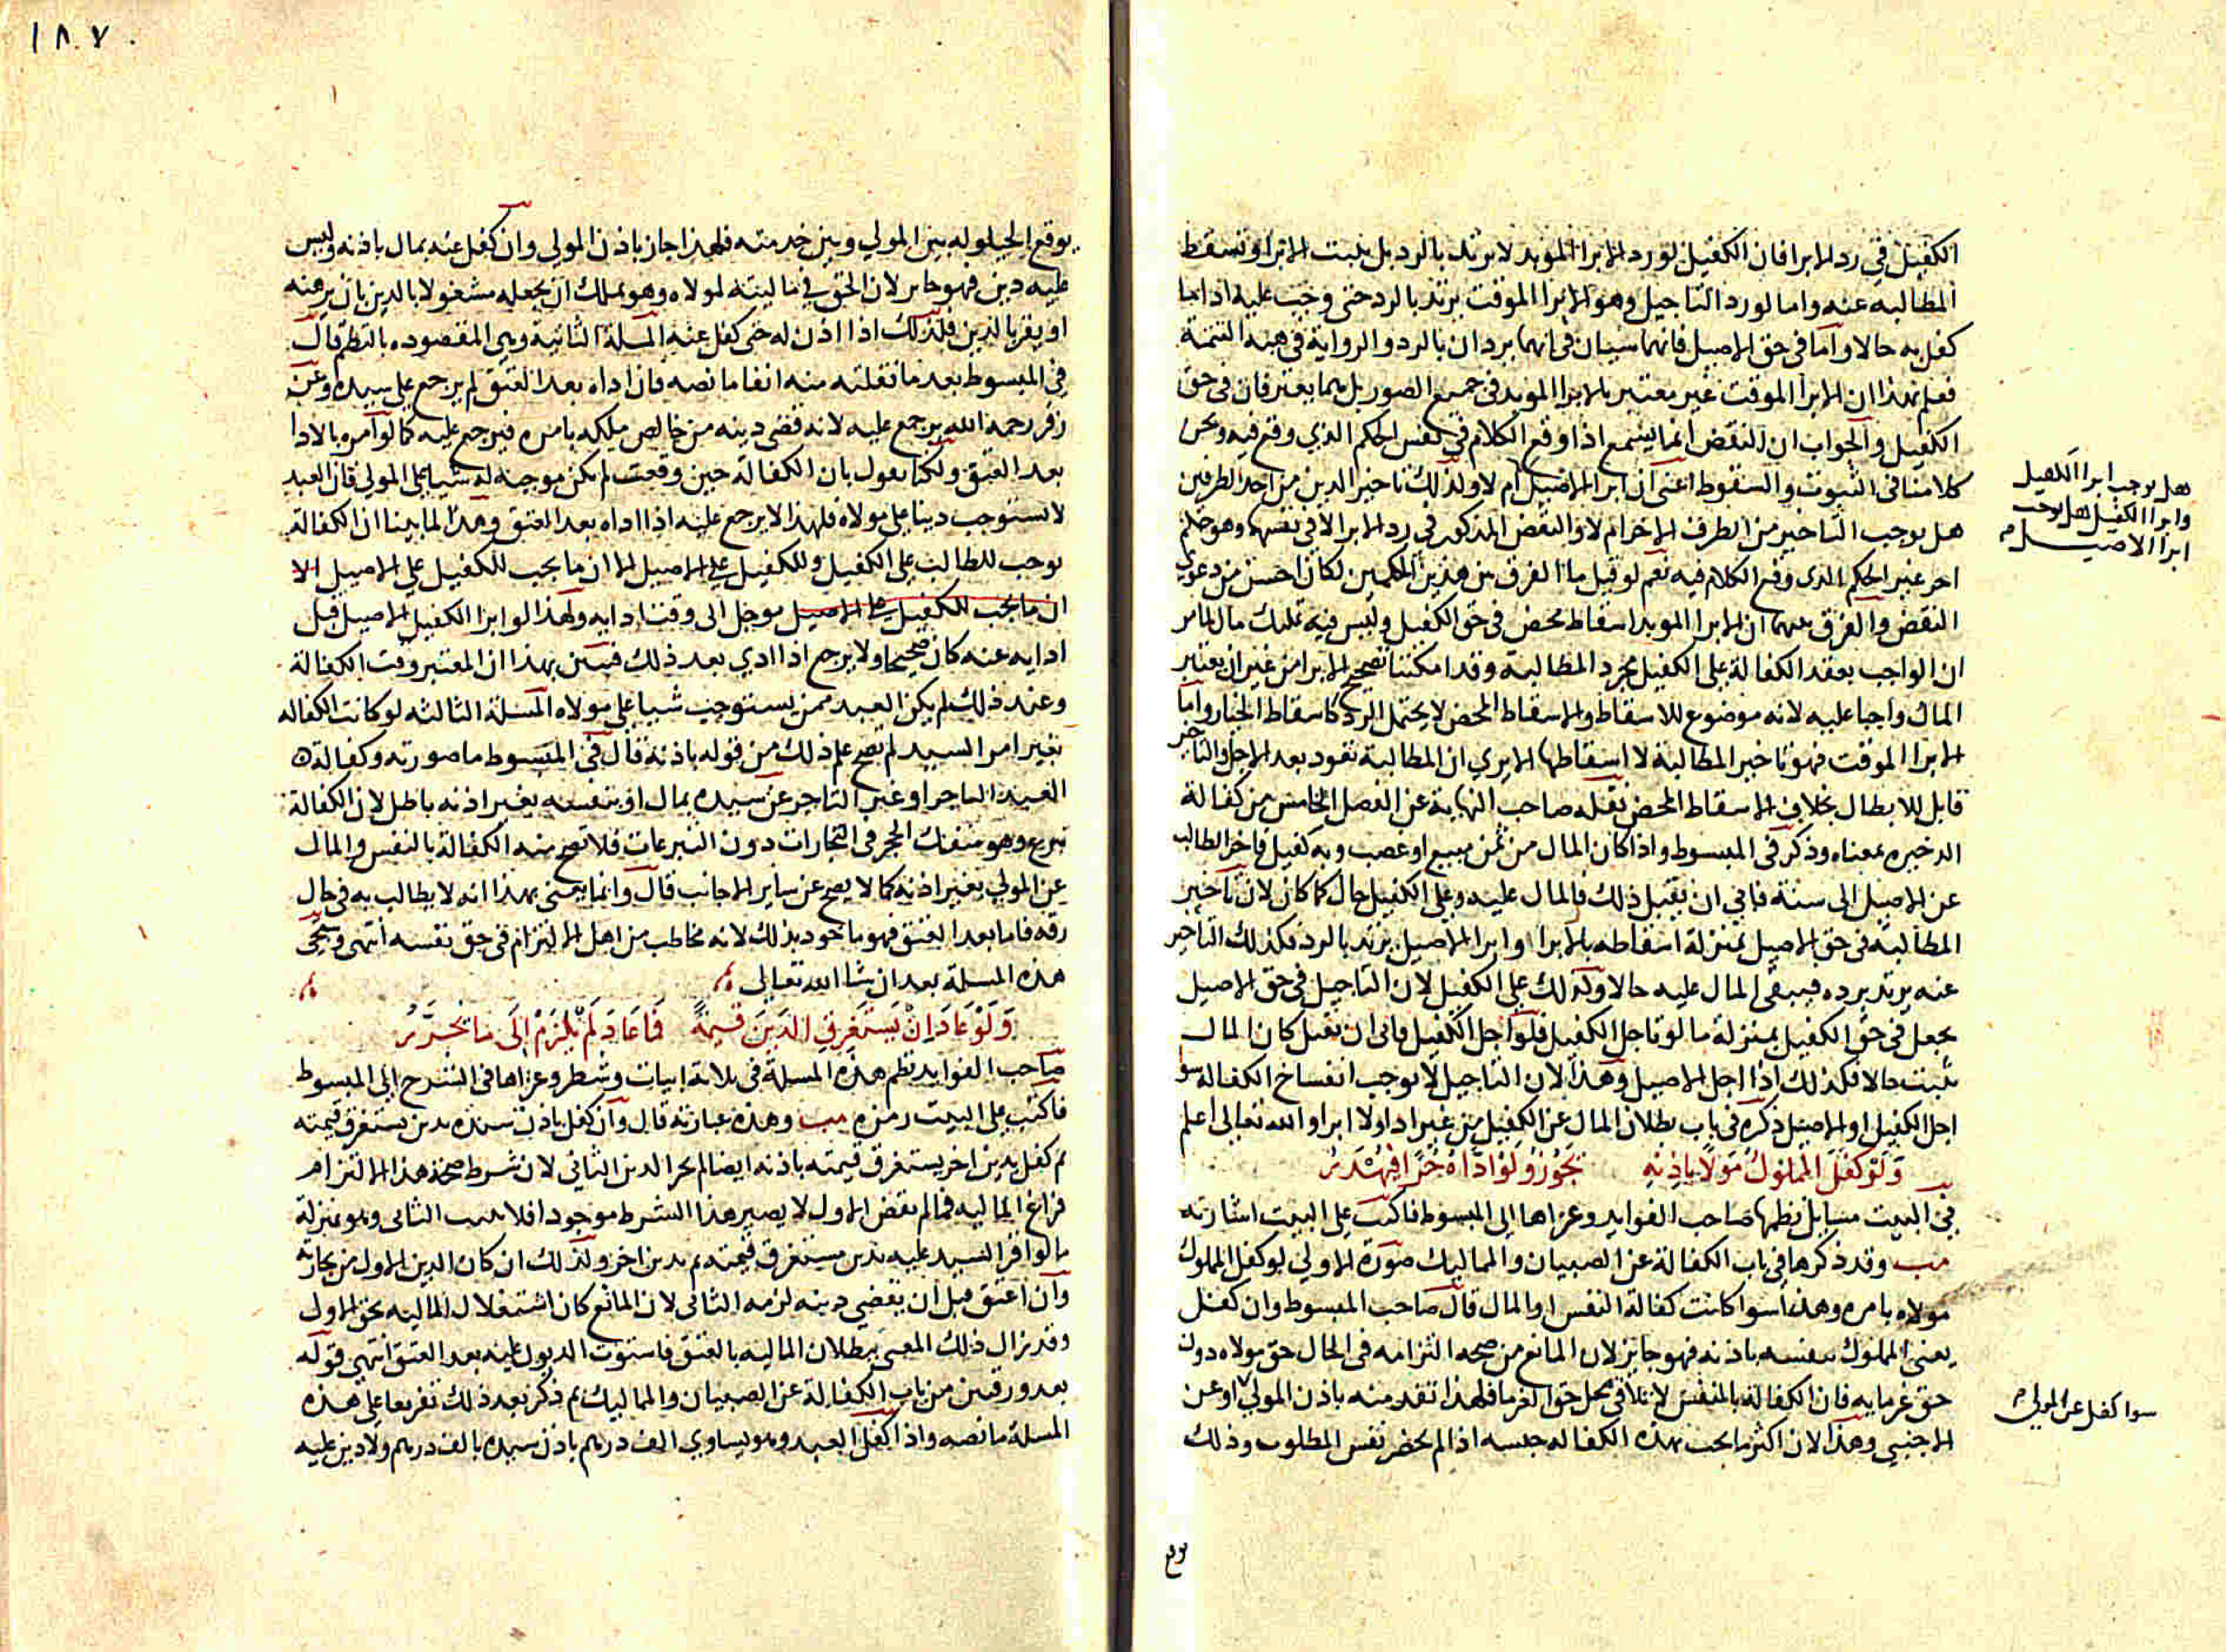 الكفيل في رد الابرا فان الكفيل لو رد الابرا الموبد لا يرتد بالرد بل يثبت الابرا وتسقط
المطالبه عنه واما لو رد التاجيل وهو الابرا الموقت يرتد بالرد حتى وجب عليه ادا ما
كفل به حالا واما في حق الاصيل فانهما سيان في انهما يردان بالرد والرواية في هبة التتمة
فعلم بهذا ان الابرا الموقت غير معتبر بالابرا الموبد في جميع الصور بل بما يعتبر فان في حق
الكفيل والجواب ان النقض انما يسمع اذا وقع الكلام في نفس الحكم الذي وقع فيه ونحن
كلامنا في الثبوت والسقوط اعنى ان ابرا الاصيل ام لا ولذلك تاخير الدين من احد الطرفين
هل يوجب التاخير من الطرف الاخر ام لا والنقض المذكور في رد الابرا لا في نفسها وهو حكم
اخر غير الحكم الذى وقع الكلام فيه نعم لو قيل ما الفرق بين هذين الحكمين لكان احسن من دعوي
النقض والفرق بينهما ان الابرا الموبد اسقاط محض في حق الكفيل وليس فيه تمليك مال لما مر
ان الواجب بعقد الكفالة على الكفيل مجرد المطالبة وقد امكننا تصحيح الابرا من غير ان يعتبر
المال واجبا عليه لانه موضوع للاسقاط والاسقاط المحض لا يحتمل الرد كاسقاط الخيار واما
الابرا الموقت فهو تاخير المطالبة لا اسقاطها الا يري ان المطالبة تعود بعد الاجل والتاخير
قابل للابطال بخلاف الاسقاط المحض نقله صاحب النهاية عن الفصل الخامس من كفالة
الدخيره بمعناه وذكر في المبسوط واذا كان المال من ثمن مبيع او غصب وبه كفيل فاخر الطالب
عن الاصيل الى سنة فابي ان يقبل ذلك فالمال عليه وعلى الكفيل حال كما كان لان تاخير
المطالبة في حق الاصيل بمنزلة اسقاطه بالابرا وابرا الاصيل يرتد بالرد فكذلك التاخير
عنه يرتد برده فيبقى المال عليه حالا وكذلك على الكفيل لان التاجيل في حق الاصيل
يجعل في حق الكفيل بمنزلة ما لو تاجل الكفيل فلو اجل الكفيل فابى ان يقبل كان المال
يثبت حالا فكذلك اذا اجل الاصيل وهذا لان التاجيل لا يوجب انفساخ الكفاله سوا
اجل الكفيل او الاصيل ذكره في باب بطلان المال عن الكفيل من غير ادا ولا ابرا والله تعالى اعلم
وَلَو كفلَ المملوكُ مَولاً بِاِذنِهِ يجُوزُ وَلَو اَدَّاهُ حُرًّا فيُهْدَرُ
في البيت مسايل نظمها صاحب الفوايد وعزاها الي المبسوط فاكتب على البيت اشارته
مب وقد ذكرها في باب الكفالة عن الصبيان والمماليك صورة الاولي لو كفل المملوك
مولاه بامره وهذا سوا كانت كفالة النفس او المال قال صاحب المبسوط وان كفل
يعنى المملوك بنفسه باذنه فهو جايز لان المانع من صحة التزامه في الحال حق مولاه دون
حق غرمايه فان الكفالة بالنفس لا تلاقي محل حق الغرما فلهذا تقدمنه باذن المولي او عن
الاجنبي وهذا لان اكثر ما يجب بهذه الكفاله حبسه اذا لم يحضر نفس المطلوب وذلك
يوقع
هل يوجب ابرا الكفيل
وابرا الكفيل هل يوجب
ابرا الاصيل م
سوا كفل عن المولي
١٨٧
يوقع الحيلوله بين المولي وبين خدمته فلهذا جاز باذن المولي وان كفل عنه بمال باذنه وليس
عليه دين فهو جايز لان الحق في ماليته لمولاه وهو يملك ان يجعله مشغولا بالدين بان يرهنه
او يقر بالدين فلذلك اذا اذن له حتى كفل عنه المسلة الثانية وهى المقصوده بالنظم قال
في المبسوط بعد ما نقلته منه انفا ما نصه فان اداه بعد العتق لم يرجع على سيده وعن
زفر رحمه الله يرجع عليه لانه قضى دينه من خالص ملكه بامره فيرجع عليه كما لو امره بالادا
بعد العتق ولكنا نقول بان الكفالة حين وقعت لم يكن موجبه له شيا على المولي فان العبد
لا يستوجب دينا على مولاه فلهذا لا يرجع عليه اذا اداه بعد العتق وهذا لما بينا ان الكفالة
توجب للطالب على الكفيل وللكفيل على الاصيل الا ان ما يجب للكفيل على الاصيل الا
ان ما يجب للكفيل على الاصيل موجل الى وقت ادايه ولهذا لو ابرا الكفيل الاصيل قبل
ادايه عنه كان صحيحا ولا يرجع اذا ادي بعد ذلك فتبين بهذا ان المعتبر وقت الكفالة
وعند ذلك لم يكن العبد ممن يستوجب شيا على مولاه المسلة الثالثه لو كانت الكفاله
بغير امر السيد لم تصح علم ذلك من قوله باذنه قال في المبسوط ما صورته وكفالة
العبد التاجر او غير التاجر عن سيده بمال او بنفسه بغير اذنه باطل لان الكفالة
تبرع وهو منفك الحجر في التجارات دون التبرعات فلا تصح منه الكفالة بالنفس والمال
عن المولي بغير اذنه كما لا يصح عن ساير الاجانب قال وانما يعنى بهذا انه لا يطالب به في حال
رقه فاما بعد العتق فهو ماخوذ بذلك لانه مخاطب من اهل الالتزام في حق نفسه انتهى وستجي
هذه المسلة بعد ان شا الله تعالى
وَلَوْ عَادَ اِنْ يَسْتَغْرِقِ الدَّينَ قيمَةً فَمَا عَادَ لَمْ يَلزَمْ اِلَى مَا يُحَرَّرُ
صاحب الفوايد نظم هذه المسلة في ثلاثة ابيات وشطر وعزاها في الشرح الى المبسوط
فاكتب على البيت رمزه مب وهذه عبارته قال وان كفل باذن سيده بدين يستغرق قيمته
ثم كفل بدين اخر يستغرق قيمته باذنه ايضا لم يجز الدين الثاني لان شرط صحة هذا الالتزام
فراغ المالية فما لم يقض الاول لا يصير هذا الشرط موجودا فلا يثبت الثانى وهو بمنزلة
ما لو اقر السيد عليه بدين مستغرق قيمته ثم بدين اخر ولذلك ان كان الدين الاول من تجارته
وان اعتق قبل ان يقضي دينه لزمه الثانى لان المانع كان اشتغلال المالية بحق الاول
وقد زال ذلك المعنى ببطلان المالية بالعتق فاستوت الديون عليه بعد العتق انتهى قوله
بعد ورقتين من باب الكفالة عن الصبيان والمماليك ثم ذكر بعد ذلك تفريعا على هذه
المسلة ما نصه واذا كفل العبد وهو يساوي الف درهم باذن سيده بالف درهم ولا دين عليه